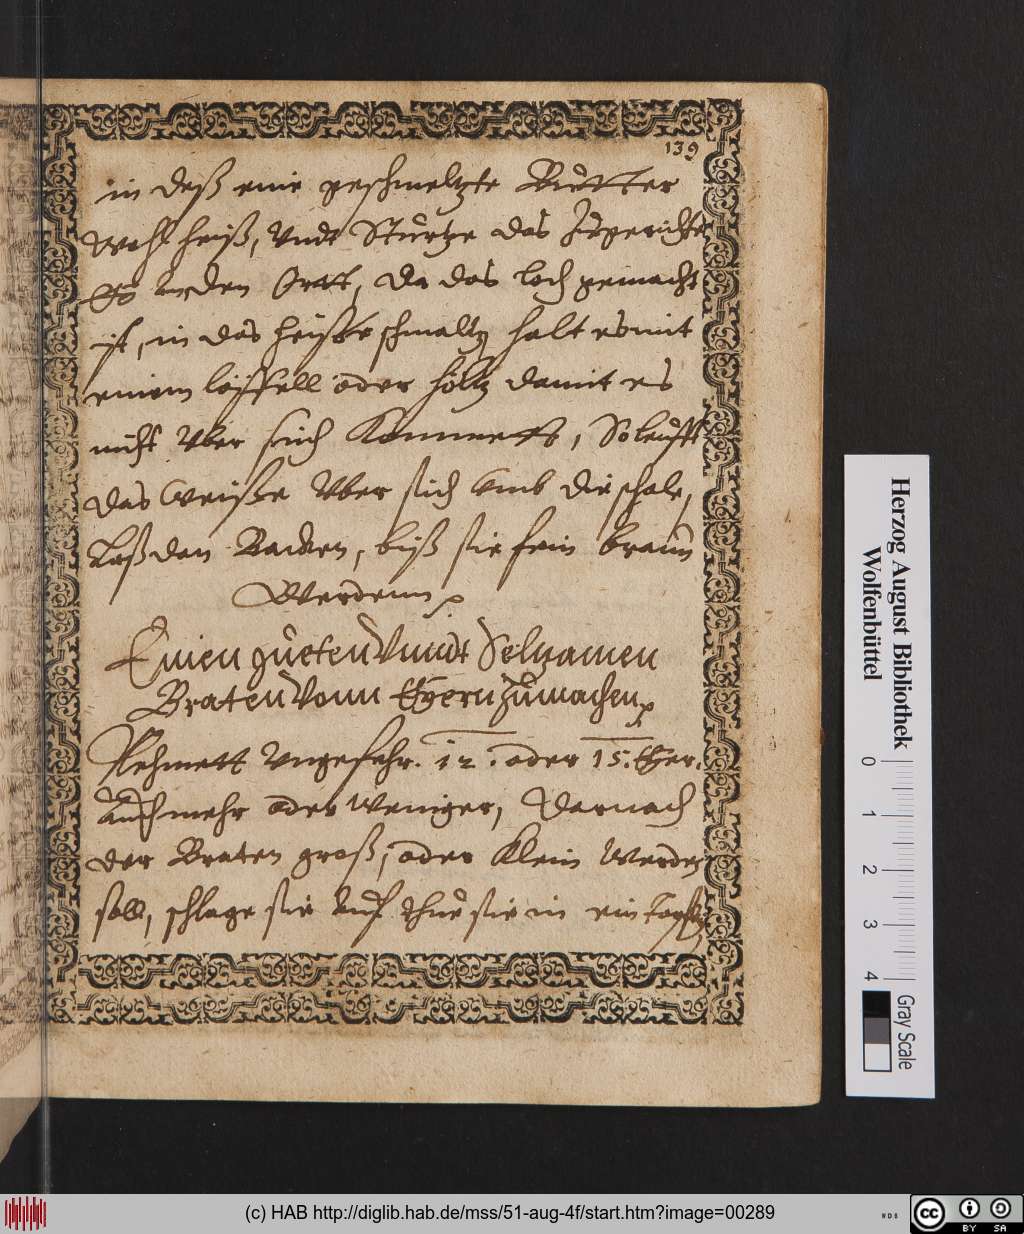 139
in deß eine geschmeltzte Butter
Wohl heiß, Vndt Stürtze das Zugerichte
Eÿ den Ortt, da das loch gemacht
ist, in das heiße schmaltz halt es mit
einem löffell oder holtz damit es
nicht Vber sich Kommett, So leufft
das Weiße Vber sich Vmb die schale,
Laß den Backen, biß sie fein braun
Werdenn
Einen gueten Vnndt Selzamen
Braten Vonn Eÿern zumachen
Nehmett Vngefehr. 12. oder 15. Eÿer,
Auch mehr oder Weniger, Darnach
der Braten groß, oder Klein Werden
soll, schlage sie Auf thue sie in ein
Herzog August Bibliothek
Wolfenbüttel
0 1 2 3 4
Gray Scale
(c) HAB http://diglib.hab.de/mss/51-aug-4f/start.htm?image=00289
WDB
cc BY SA